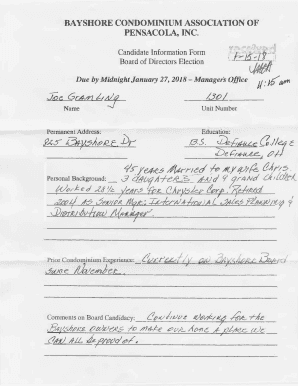 BAYSHORE CONDOMINIUM ASSOCIATION OF
PENSACOLA, INC.
Candidate Information Form
Board of Directors Election
received
1-15-18
11:15 am
Due by Midnight January 27, 2018 – Manager's Office
Joe Gramling 1301
Name Unit Number
Permanent Address: Education:
825 Bayshore Dr B.S. Defiance College
Defiance, OH
45 years married to my wife Chris
Personal Background: 3 daughters and 4 grand children
Worked 28½ years for Chrysler Corp. Retired
2004 as Senior Mgr; International Sales Planning &
Distribution Manager
Prior Condominium Experience: Currently on Bayshore Board
since November.
Comments on Board Candidacy: Continue working for the
Bayshore owners to make our home a place we
can all be proud of.